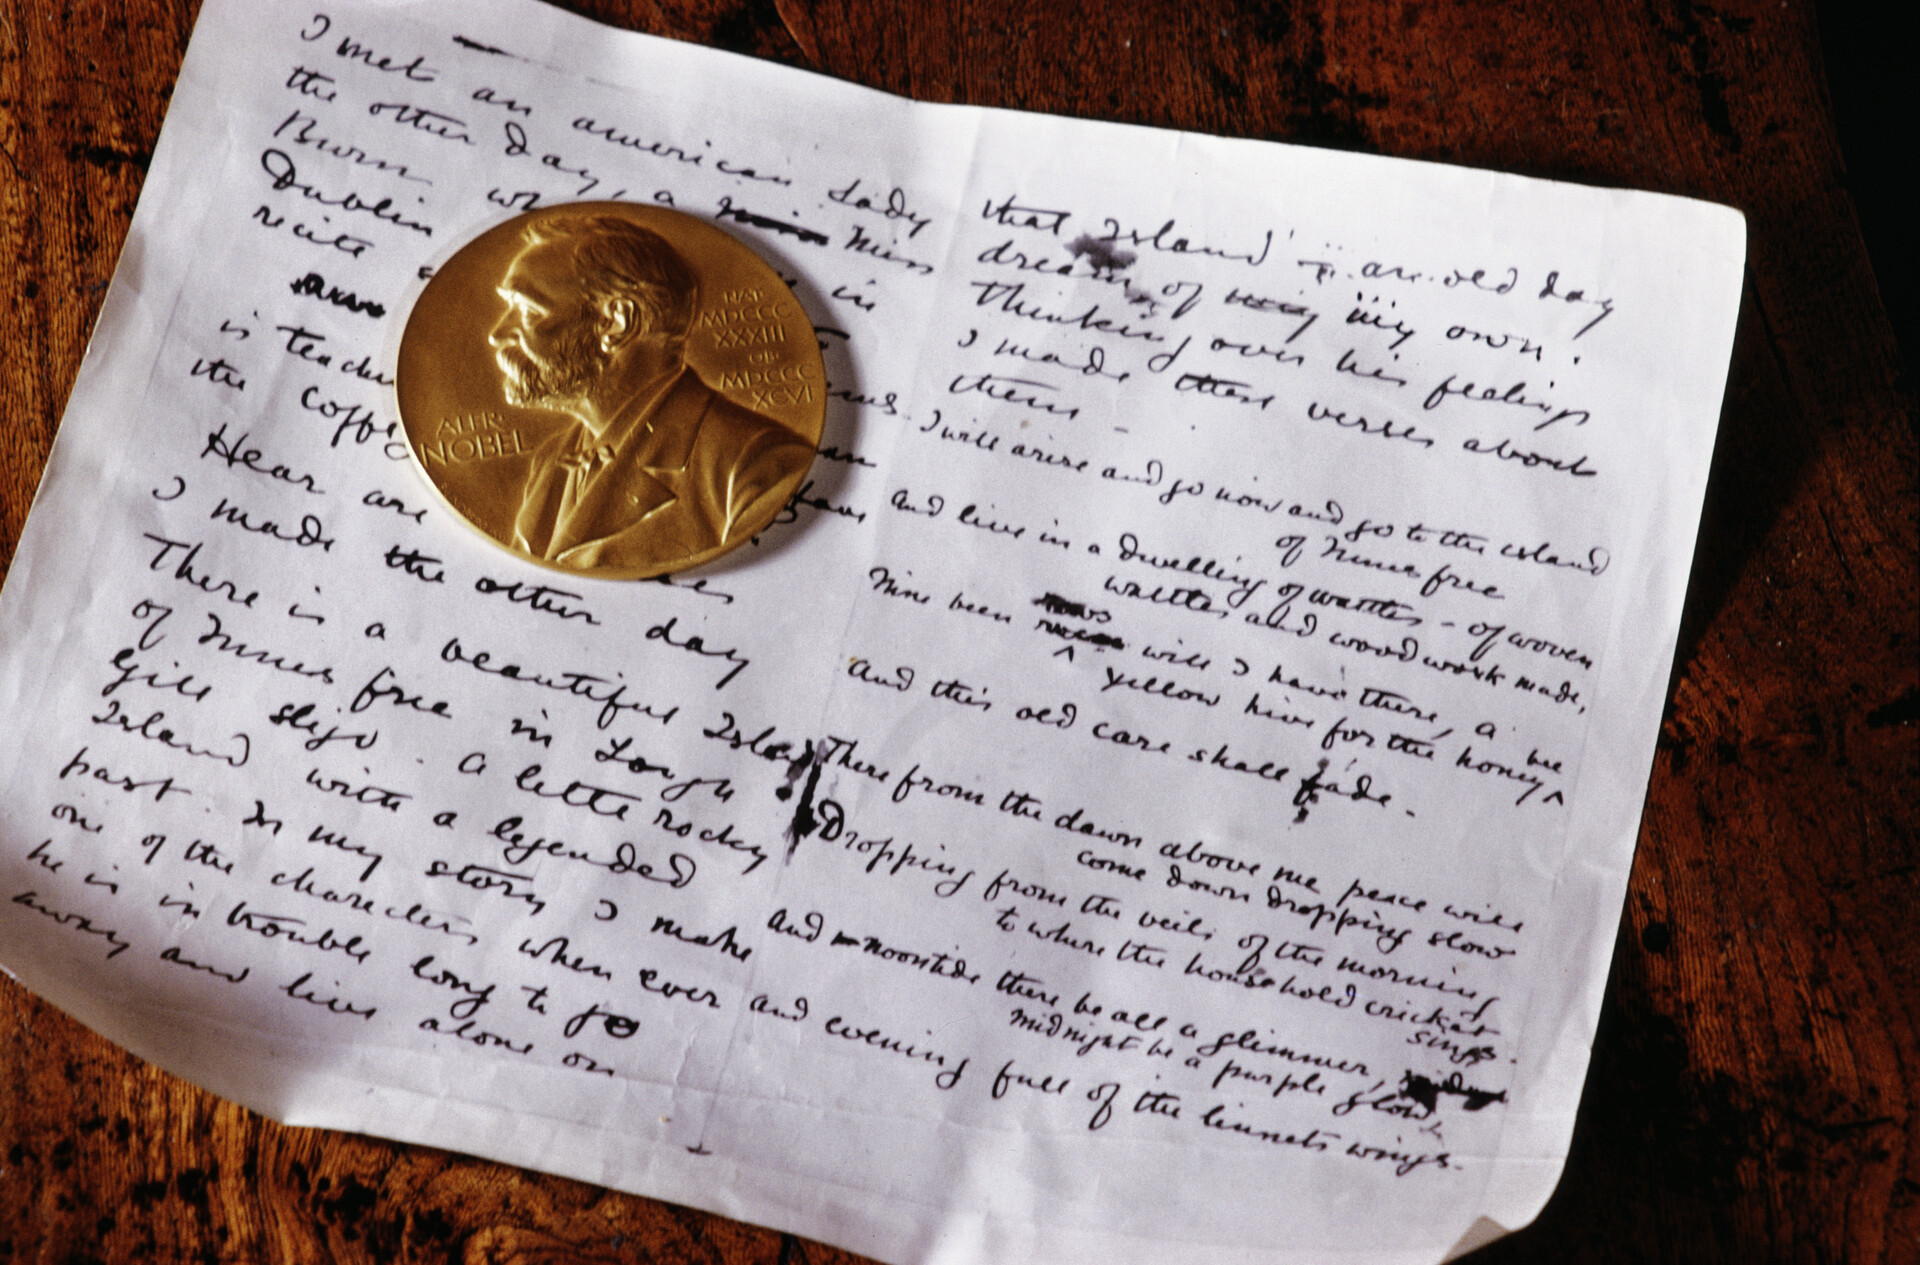 I met an american Lady
the other day, a Miss
Burn
Dublin in
recite
is
the
Hear are
I made the other day
There is a beautiful Island
of Innis free in Lough
Gill sligo. A little rocky
Island with a legended
past. In my story I make
one of the characters when ever
he is in trouble long to go
away and live alone on
NAT
MDCCC
XXXIII
OB
MDCCC
XCVI
ALFR
NOBEL
that Island' an old day
dream of my own.
Thinking over his feelings
I made these verses about
them –
I will arise and go now and go to the island
of Innis free
And live in a dwelling of wattles – of woven
wattles and wood work made,
Nine been rows will I have there, a
yellow hive for the honey bee
And this old care shall fade.
There from the dawn above me peace will
come down dropping slow
Dropping from the veils of the morning
to where the household cricket
sings.
And noontide there be all a glimmer,
midnight be a purple glow
and evening full of the linnets wings.